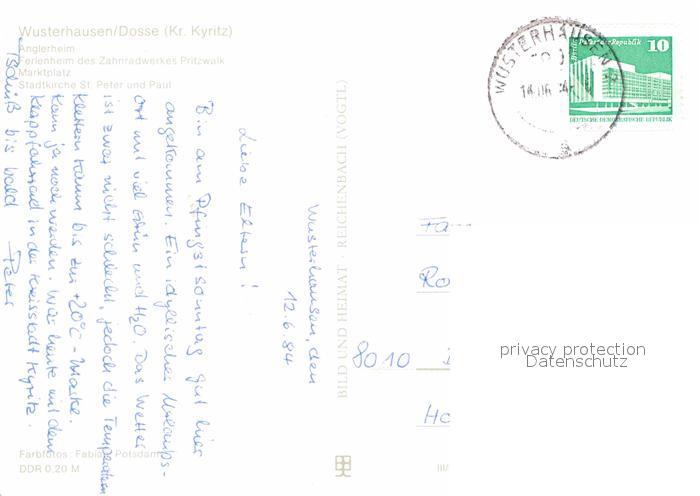 Wusterhausen/Dosse (Kr. Kyritz)
Anglerheim
Ferienheim des Zahnradwerkes Pritzwalk
Marktplatz
Stadtkirche St. Peter und Paul
Wusterhausen, den
12.6.84
Liebe Eltern!
Bin am Pfingstsonntag gut hier
angekommen. Ein idyllischer Urlaubs-
ort mit viel Grün und H₂O. Das Wetter
ist zwar nicht schlecht, jedoch die Temperaturen
klettern kaum bis zur +20°C-Marke.
Kann ja noch werden. War heute mit dem
Klappfahrrad in der Kreisstadt Kyritz.
Tschüß bis bald Peter
Farbfotos: Fabian, Potsdam
DDR 0,20 M
BILD UND HEIMAT · REICHENBACH (VOGTL
III/
WUSTERHAUSEN
Berlin, Palast der Republik
10
DEUTSCHE DEMOKRATISCHE REPUBLIK
Fa
Ro
8010
Ho
privacy protection
Datenschutz